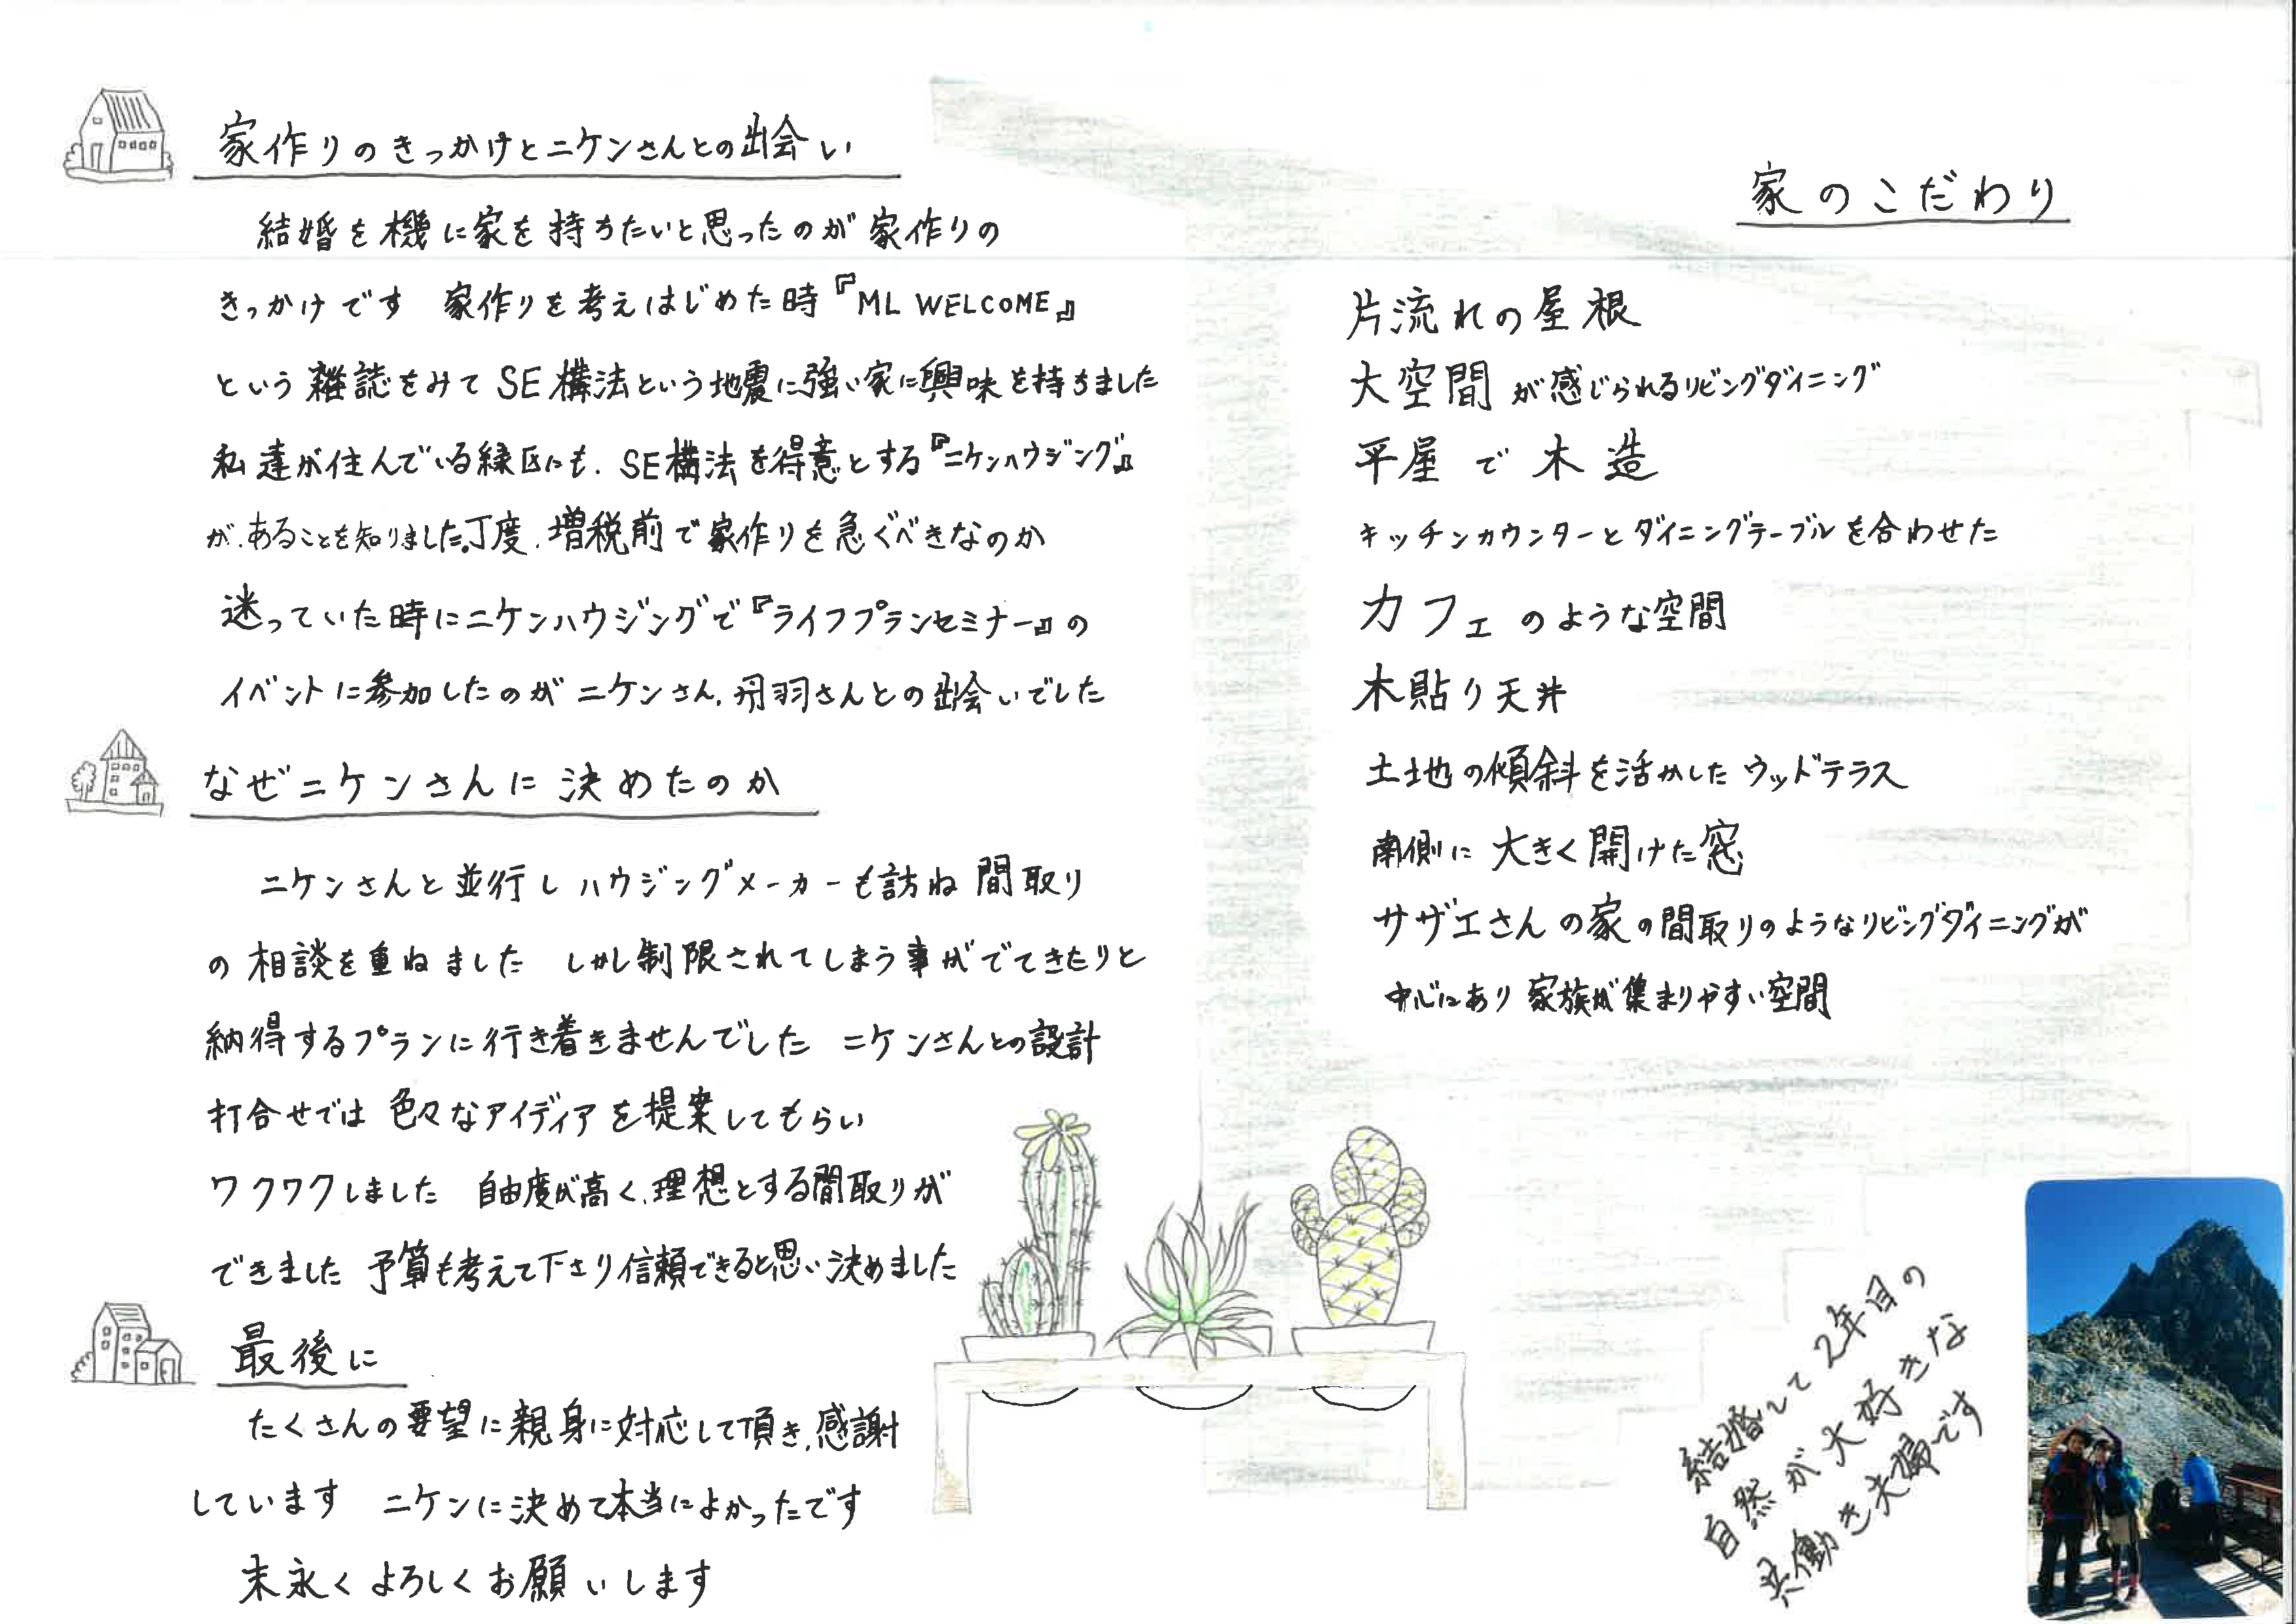 家作りのきっかけとニケンさんとの出会い
結婚を機に家を持ちたいと思ったのが家作りの
きっかけです 家作りを考えはじめた時『ML WELCOME』
という雑誌をみてSE構法という地震に強い家に興味を持ちました
私達が住んでいる緑区にも、SE構法を得意とする『ニケンハウジング』
が、あることを知りました。丁度、増税前で家作りを急ぐべきなのか
迷っていた時にニケンハウジングで『ライフプランセミナー』の
イベントに参加したのがニケンさん、丹羽さんとの出会いでした
なぜニケンさんに決めたのか
ニケンさんと並行しハウジングメーカーも訪ね間取り
の相談を重ねました しかし制限されてしまう事がでてきたりと
納得するプランに行き着きませんでした ニケンさんとの設計
打合せでは色々なアイディアを提案してもらい
ワクワクしました 自由度が高く、理想とする間取りが
できました 予算も考えて下さり信頼できると思い決めました
最後に
たくさんの要望に親身に対応して頂き、感謝
しています ニケンに決めて本当によかったです
末永くよろしくお願いします
家のこだわり
片流れの屋根
大空間が感じられるリビングダイニング
平屋で木造
キッチンカウンターとダイニングテーブルを合わせた
カフェのような空間
木貼り天井
土地の傾斜を活かしたウッドテラス
南側に大きく開けた窓
サザエさんの家の間取りのようなリビングダイニングが
中心にあり家族が集まりやすい空間
結婚して2年目の
自然が大好きな
共働き夫婦です